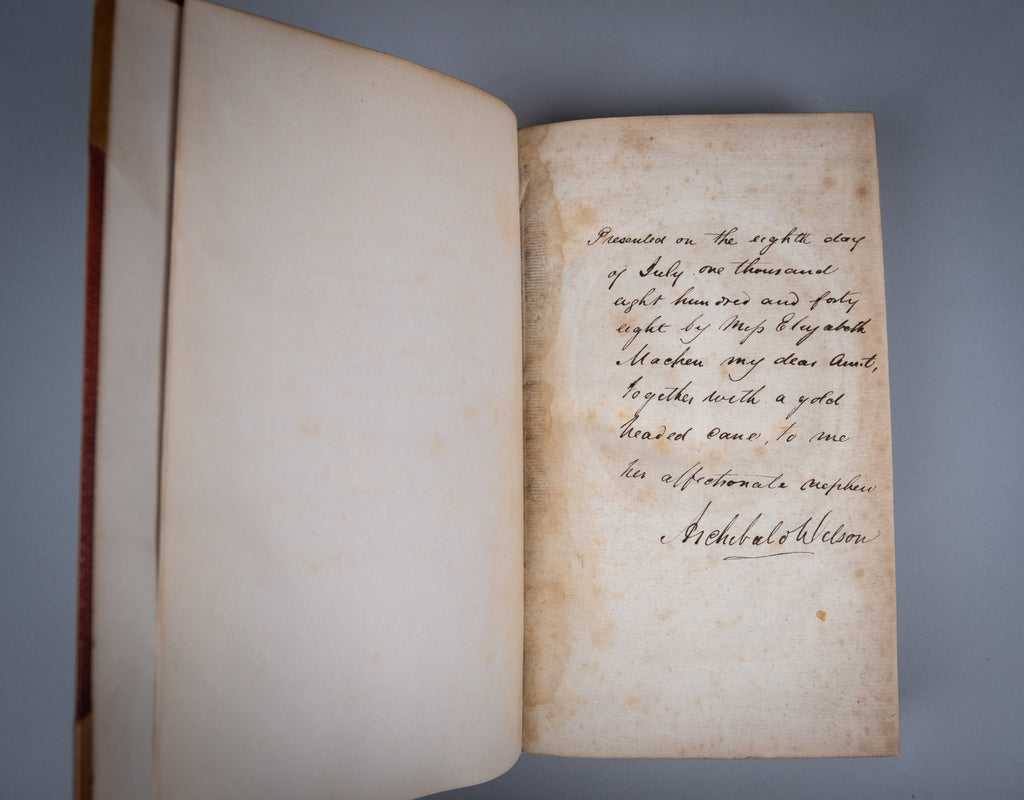 Presented on the eighth day
of July one thousand
eight hundred and forty
eight by Miss Elizabeth
Machen my dear Aunt,
together with a gold
headed cane, to me
her affectionate nephew
Archibald Wilson